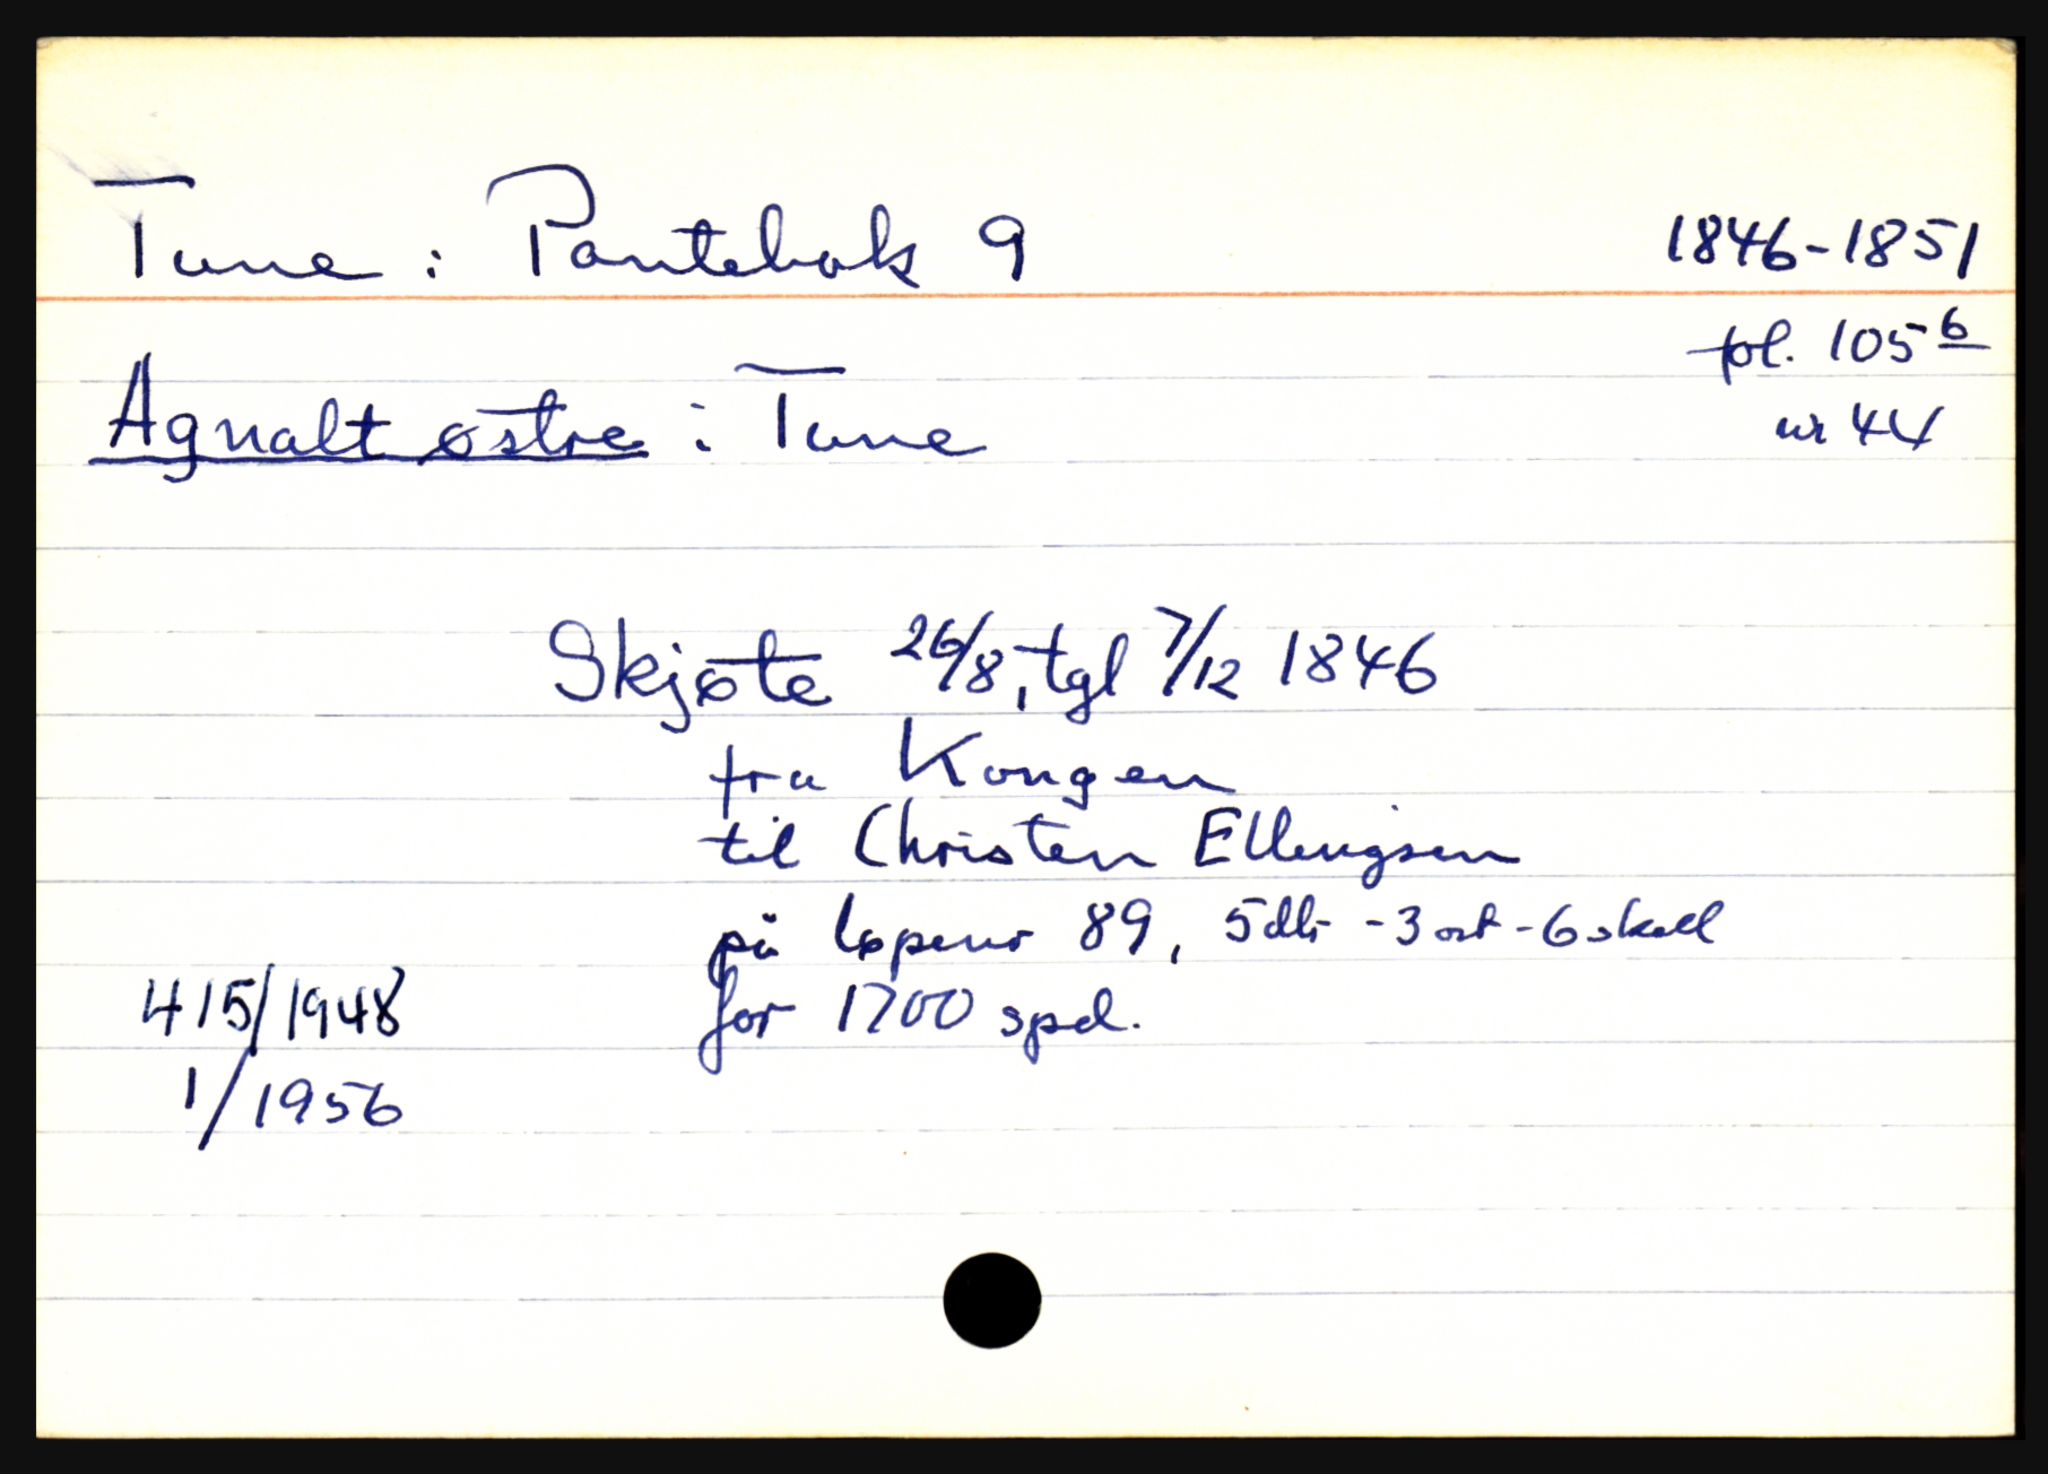 Tune : Pantebok 9 1846-1851
fol. 105 b
Agnalt østre : Tune nr 44
Skjøte 26/8, tgl 7/12 1846
fra Kongen
til Christen Ellingsen
på løpenr 89, 5 dlr - 3 ort - 6 skill
for 1700 spd.
415/1948
1/1956